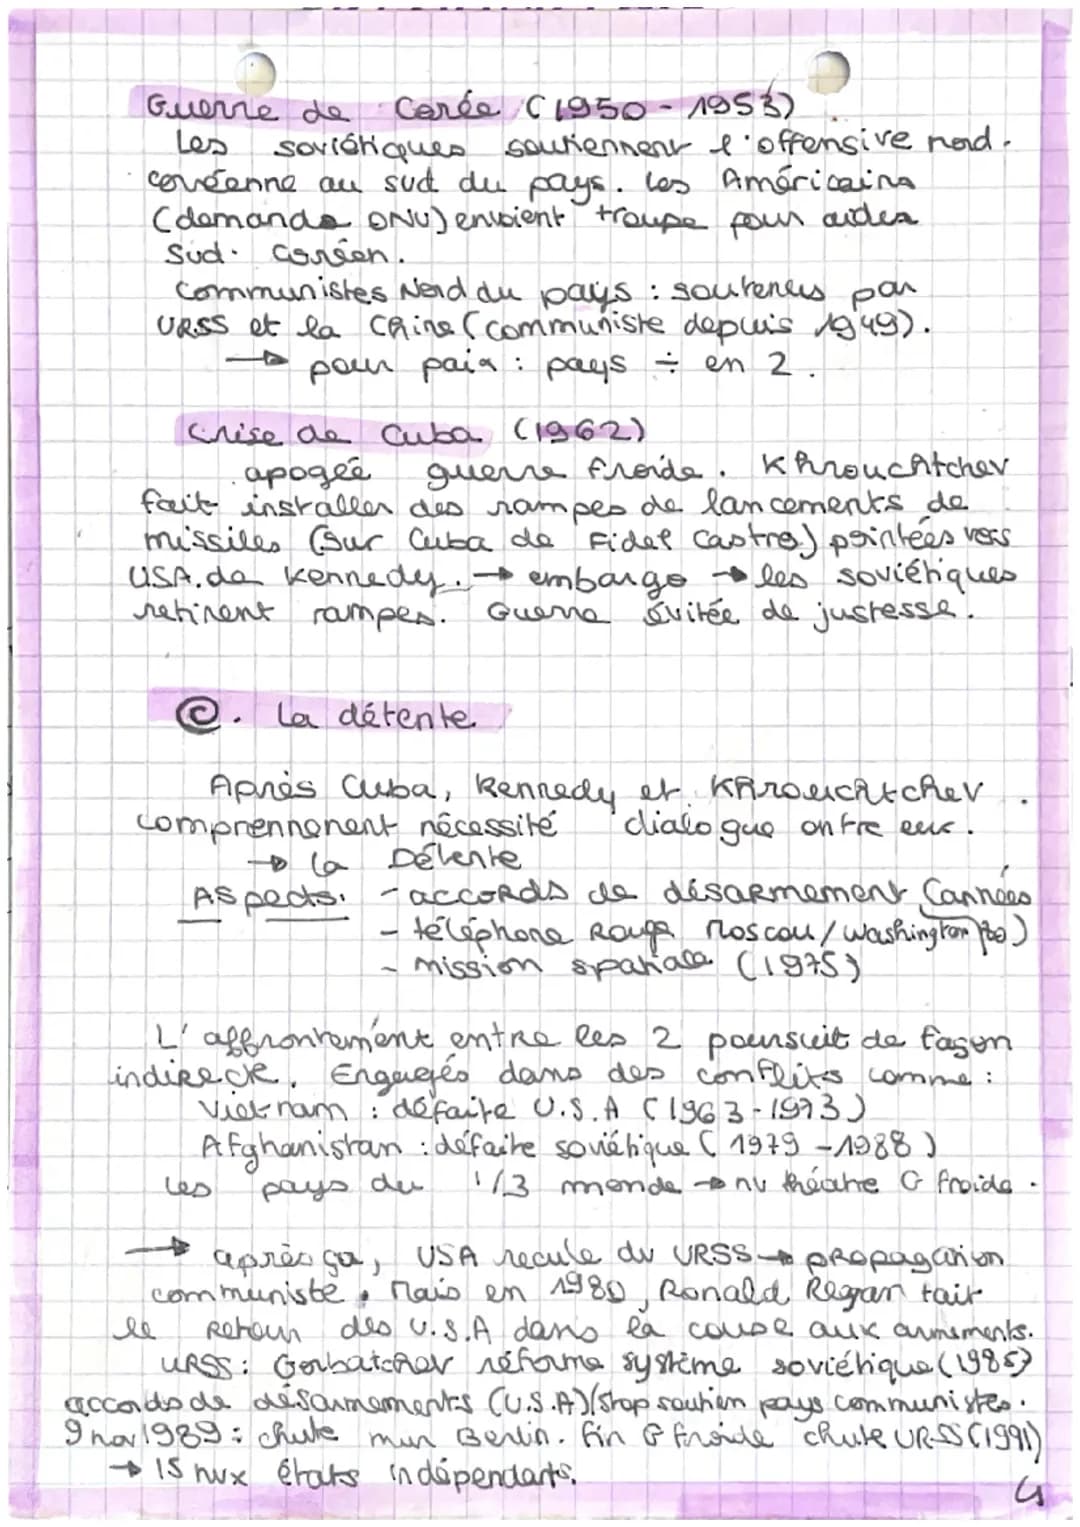 Guerre de Corée (1950 - 1953)
Les soviétiques soutiennent l'offensive nord-
coréenne au sud du pays. Les Américains
(demande ONU) envoient troupe pour aider
Sud-Coréen.
Communistes Nord du pays : soutenus par
URSS et la Chine (communiste depuis 1949).
→ pour paix : pays ÷ en 2.
Crise de Cuba (1962)
apogée guerre froide. Khrouchtchev
fait installer des rampes de lancements de
missiles (sur Cuba de Fidel Castro) pointées vers
USA.de Kennedy. → embargo → les soviétiques
retirent rampes. Guerre évitée de justesse.
C. La détente
Après Cuba, Kennedy et Khrouchtchev
comprennenent nécessité dialogue entre eux.
→ la Détente
Aspects. - accords de désarmement (années
- téléphone Rouge Moscou/Washington 70)
- mission spatiale (1975)
L'affrontement entre les 2 poursuit de façon
indirecte. Engagés dans des conflits comme :
Vietnam : défaite U.S.A (1963-1973)
Afghanistan : défaite soviétique (1979-1988)
Les pays du 1/3 monde → nv théâtre G froide.
→ après ça, USA recule dv URSS → propagation
communiste. Mais en 1980, Ronald Regan fait
le Retour des U.S.A dans la course aux armements.
URSS : Gorbatchev réforme système soviétique (1985)
accords de désarmements (U.S.A)/Stop soutien pays communistes.
9 nov 1989 : chute mur Berlin. Fin G froide chute URSS (1991)
→ 15 nvx états indépendants.
4